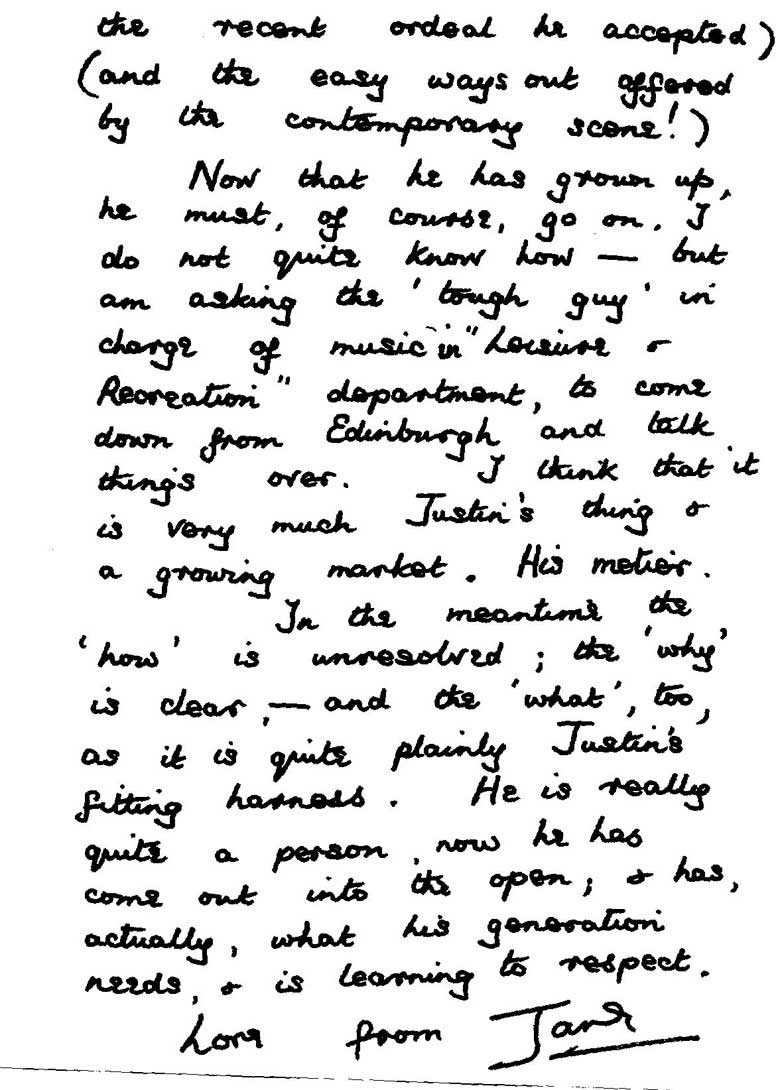 the recent ordeal he accepted)
(and the easy ways out offered
by the contemporary scene!)
Now that he has grown up,
he must, of course, go on. I
do not quite know how — but
am asking the 'tough guy' in
charge of music in "Leisure &
Recreation" department, to come
down from Edinburgh and talk
things over. I think that it
is very much Justin's thing &
a growing market. His metier.
In the meantime the
'how' is unresolved; the 'why'
is clear, — and the 'what', too,
as it is quite plainly Justin's
fitting harness. He is really
quite a person, now he has
come out into the open; & has,
actually, what his generation
needs, & is learning to respect.
Love from Jane